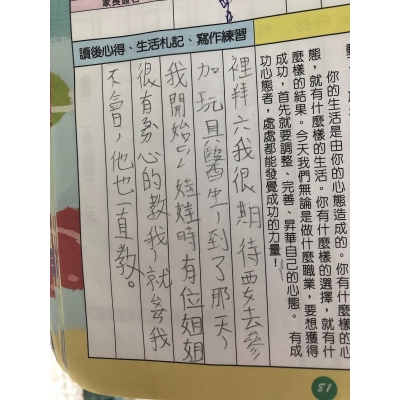 讀後心得、生活札記、寫作練習
你的生活是由你的心態造成的。你有什麼樣的心
態，就有什麼樣的生活。你有什麼樣的選擇，就有什
麼樣的結果。今天我們無論是做什麼職業，要想獲得
成功，首先就要調整、完善、昇華自己的心態。有成
功心態者，處處都能發覺成功的力量！
裡拜六我很期待要去參
加玩具醫生，到了那天，
我開始ㄈㄥˊ娃娃時有位姐姐
很有耐心的教我，就算我
不會，他也一直教。
81